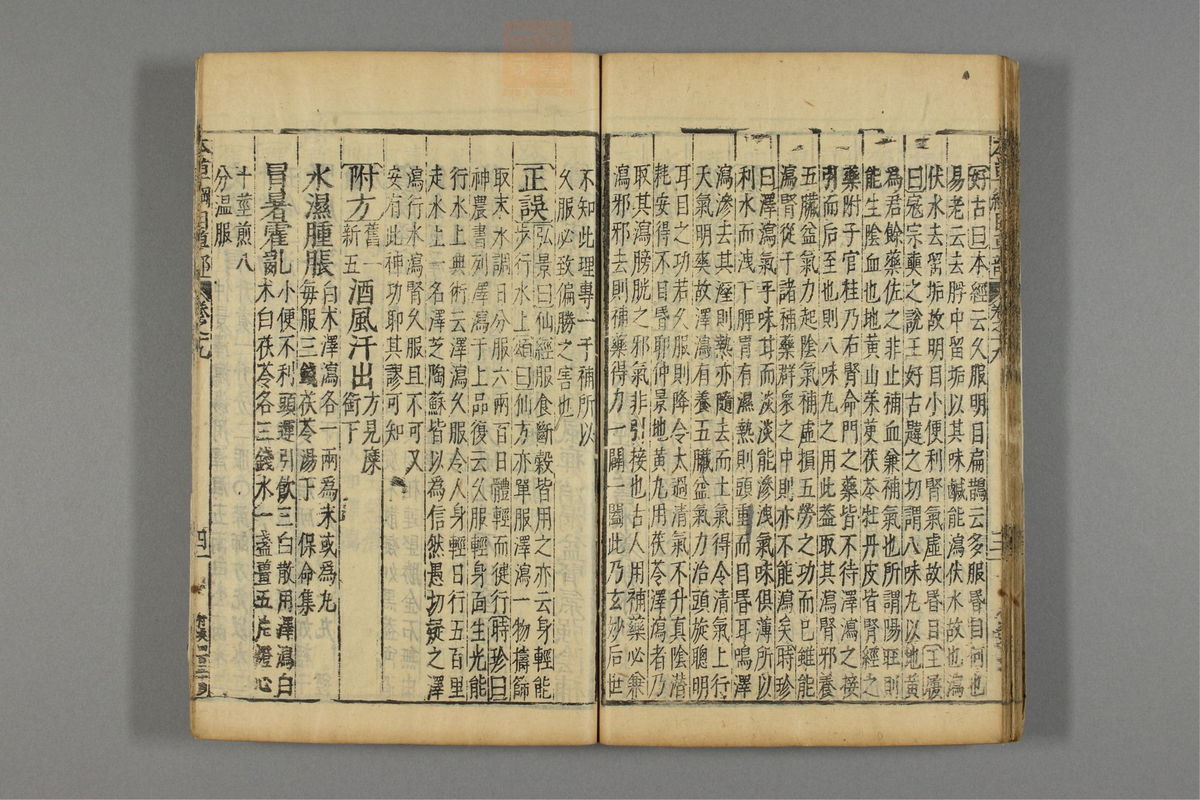 好古曰本經云久服明目扁鵲云多服昏目何也
易老云去脬中留垢以其味鹹能瀉伏水故也瀉
伏水去留垢故明目小便利腎氣虛故昏目王履
曰寇宗奭之說王好古韙之切謂八味丸以地黃
為君餘藥佐之非止補血兼補氣也所謂陽旺則
能生陰血也地黃山茱萸茯苓牡丹皮皆腎經之
藥附子官桂乃右腎命門之藥皆不待澤瀉之接
引而后至也則八味丸之用此葢取其瀉腎邪養
五臟益氣力起陰氣補虛損五勞之功而已雖能
瀉腎從于諸補藥群衆之中則亦不能瀉矣時珍
曰澤瀉氣平味甘而淡淡能滲泄氣味俱薄所以
利水而洩下脾胃有濕熱則頭重而目昏耳鳴澤
瀉滲去其溼則熱亦隨去而土氣得令清氣上行
天氣明爽故澤瀉有養五臟益氣力治頭旋聰明
耳目之功若久服則降令太過清氣不升真陰潛
耗安得不目昏耶仲景地黃丸用茯苓澤瀉者乃
取其瀉膀胱之邪氣非引接也古人用補藥必兼
瀉邪邪去則補藥得力一闢一闔此乃玄妙后世
不知此理專一于補所以
久服必致偏勝之害也
正誤弘景曰仙經服食斷穀皆用之亦云身輕能
步行水上頌曰仙方亦單服澤瀉一物擣篩
取末水調日分服六兩百日體輕而徤行時珍曰
神農書列澤瀉于上品復云久服輕身面生光能
行水上典術云澤瀉久服令人身輕日行五百里
走水上一名澤芝陶蘇皆以為信然愚切疑之澤
瀉行水瀉腎久服且不可又
安有此神功耶其謬可知
附方舊一新五酒風汗出方見麋銜下
水濕腫脹白朮澤瀉各一兩為末或為丸
每服三錢茯苓湯下保命集
冒暑霍亂小便不利頭運引飲三白散用澤瀉白
朮白茯苓各三錢水一盞薑五片燈心
十莖煎八
分溫服
本草綱目草部
卷之十九
四